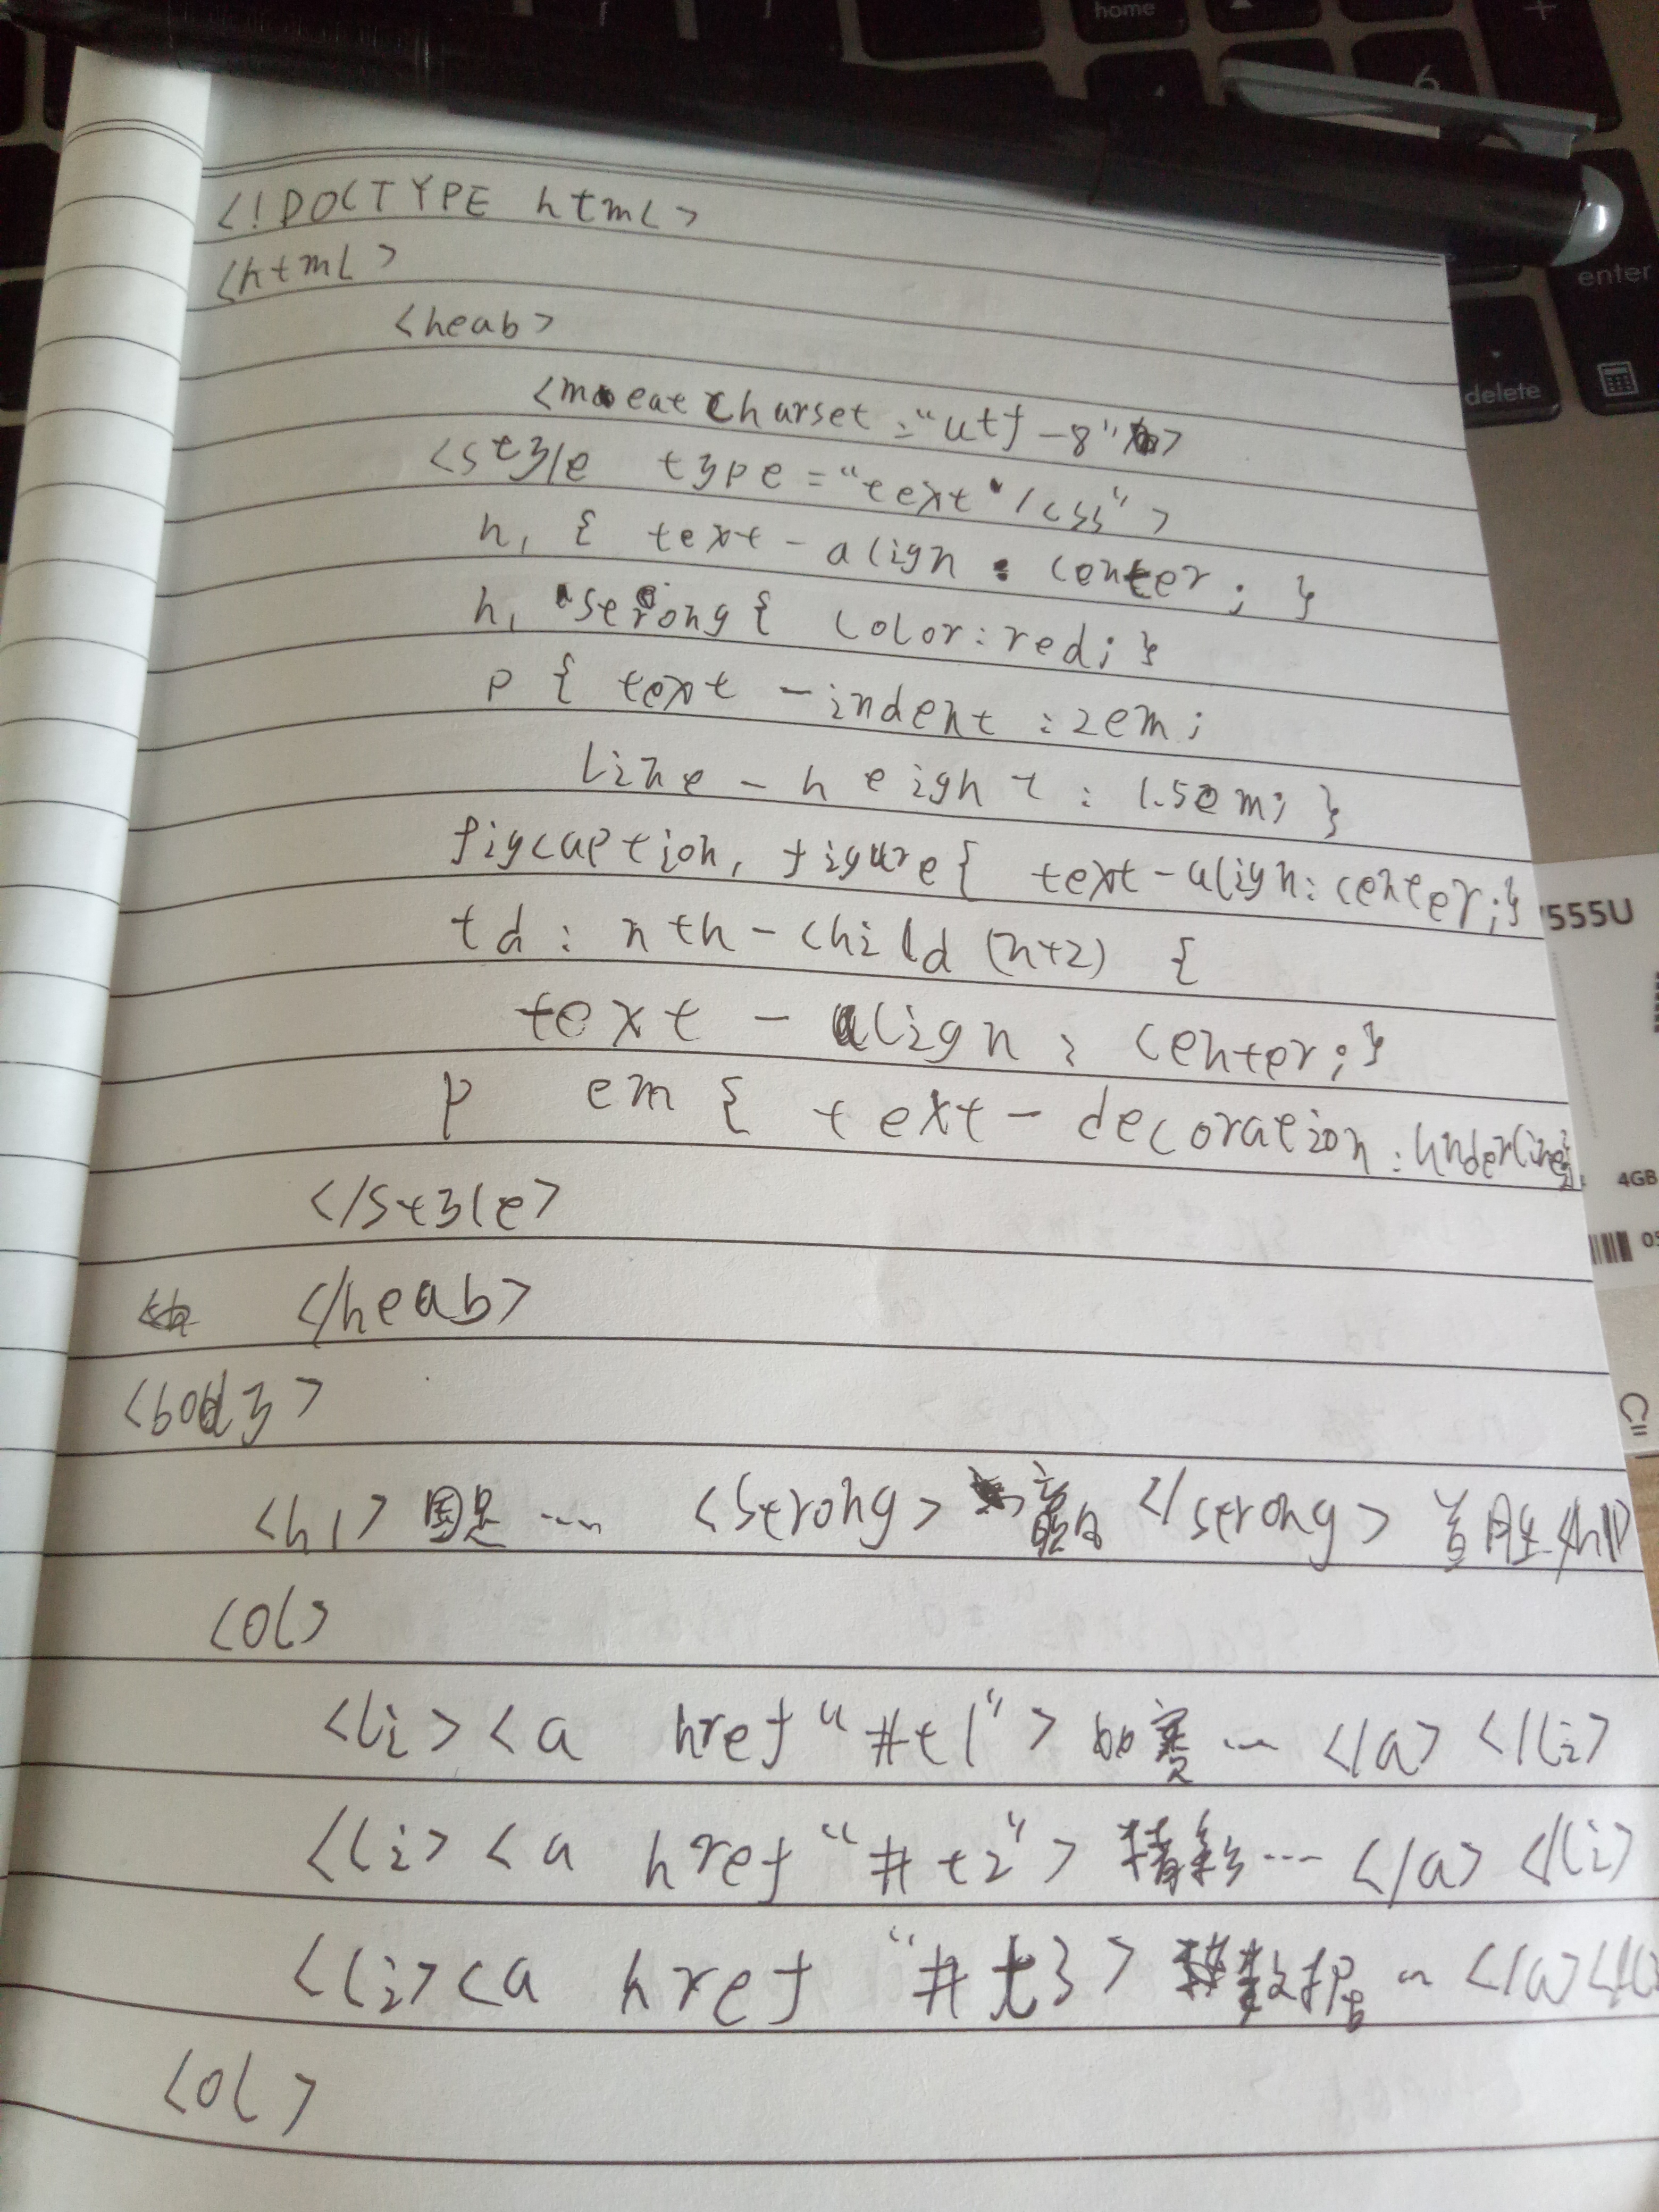 home
6
+
enter
delete
<!DOCTYPE html>
<html>
<heab>
<meat charset="utf-8">
<style type="text/css">
h1 { text-align : center ; }
h1 strong { color:red; }
p { text-indent : 2em ;
line-height : 1.5em; }
figcaption, figure{ text-align:center;}
td : nth-child (n+2) {
text-align : center;}
p em { text-decoration : underline;}
</style>
</heab>
<body>
<h1> 国足 ... <strong> 赢 </strong> 首胜</h1>
<ol>
<li><a href "#t1"> 比赛 ... </a> </li>
<li><a href "#t2"> 精彩 ... </a> </li>
<li><a href "#t3> 数据 ... </a></li
<ol>
555U
4GB
05